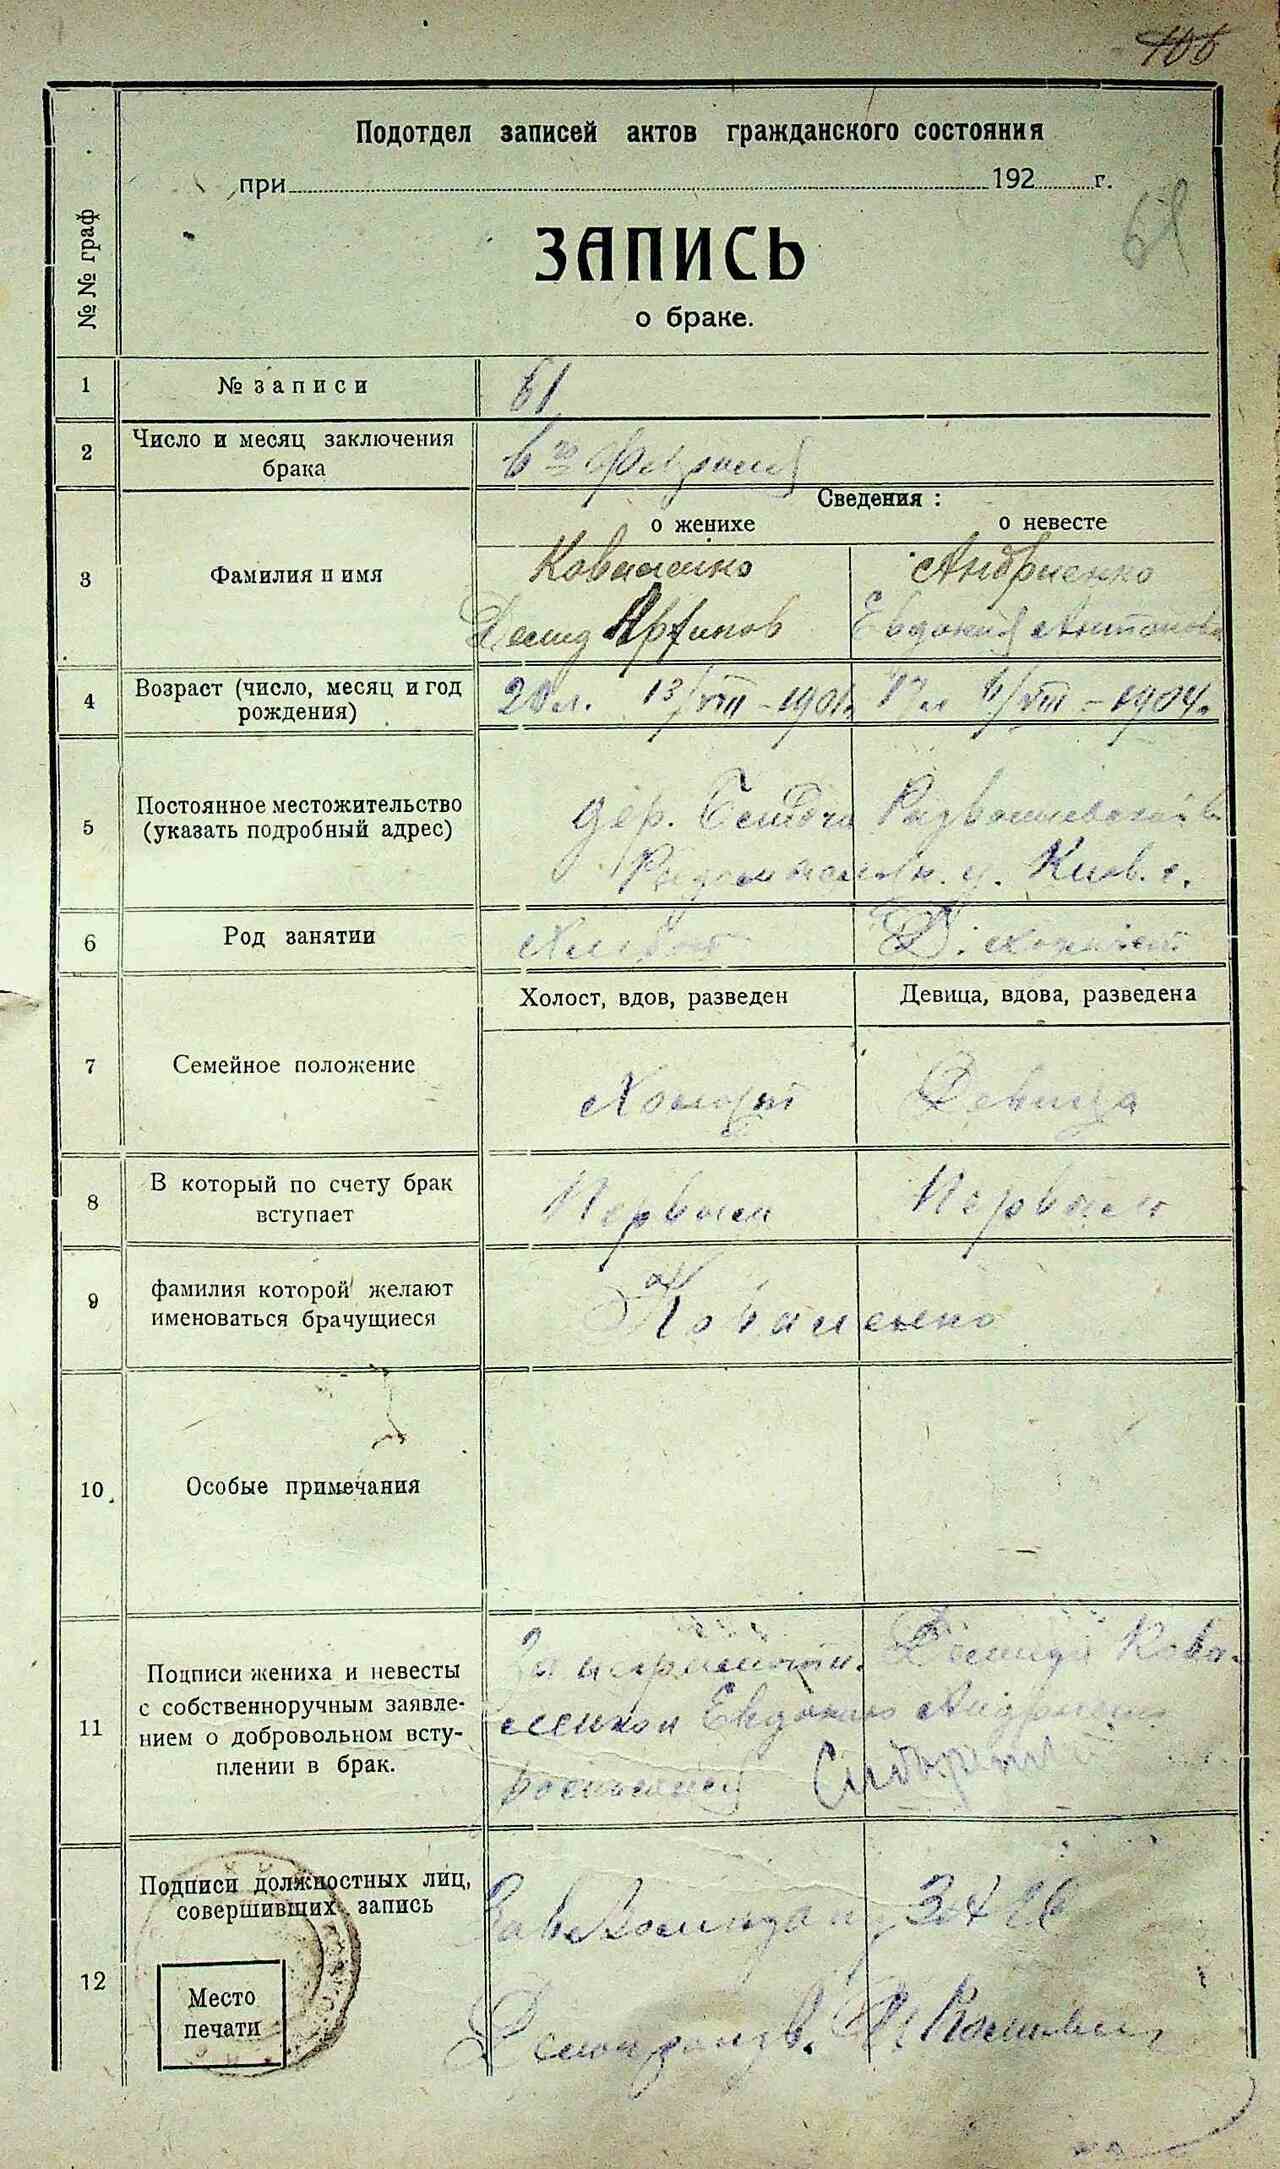 106
Подотдел записей актов гражданского состояния
при 192 г.
61
ЗАПИСЬ
о браке.
№ № граф
1 № записи 61
2 Число и месяц заключения
брака 6го Февраля
Сведения :
о женихе о невесте
3 Фамилия и имя
Коваленко Андриенко
Демид Евдокия Антонова
4 Возраст (число, месяц и год
рождения)
20 л. 13/VIII - 1901г. 17 л 4/VIII - 1904г.
5 Постоянное местожительство
(указать подробный адрес)
дер.
у. Киев. г.
6 Род занятии
Хлебоп
Д.
7 Семейное положение
Холост, вдов, разведен Девица, вдова, разведена
Холост Девица
8 В который по счету брак
вступает
Первый Первый
9 фамилия которой желают
именоваться брачущиеся
Коваленко
10 Особые примечания
11 Подписи жениха и невесты
с собственноручным заявле-
нием о добровольном всту-
плении в брак.
За неграмотн. Демида Кова-
ленко и Евдокию Андриенко
12 Подписи должностных лиц,
совершивших запись
Место
печати
Делопроизв.